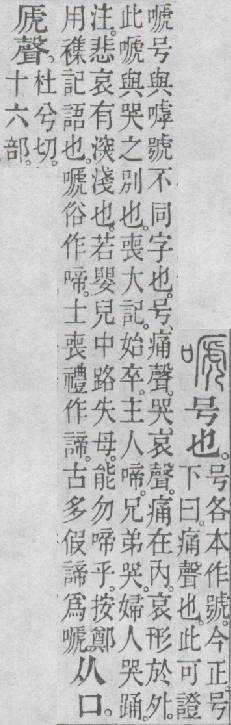 嗁号也。
号各本作號。今正。号
下曰。痛聲也。此可證
嗁号與嘑號不同字也。号、痛聲。哭、哀聲。痛在內。哀形於外。
此嗁與哭之別也。喪大記。始卒。主人啼。兄弟哭。婦人哭踊。
注。悲哀有深淺也。若嬰兒中路失母。能勿啼乎。按鄭
用襍記語也。嗁俗作啼。士喪禮作諦。古多假諦爲嗁
从口。
虒聲。
杜兮切。
十六部。